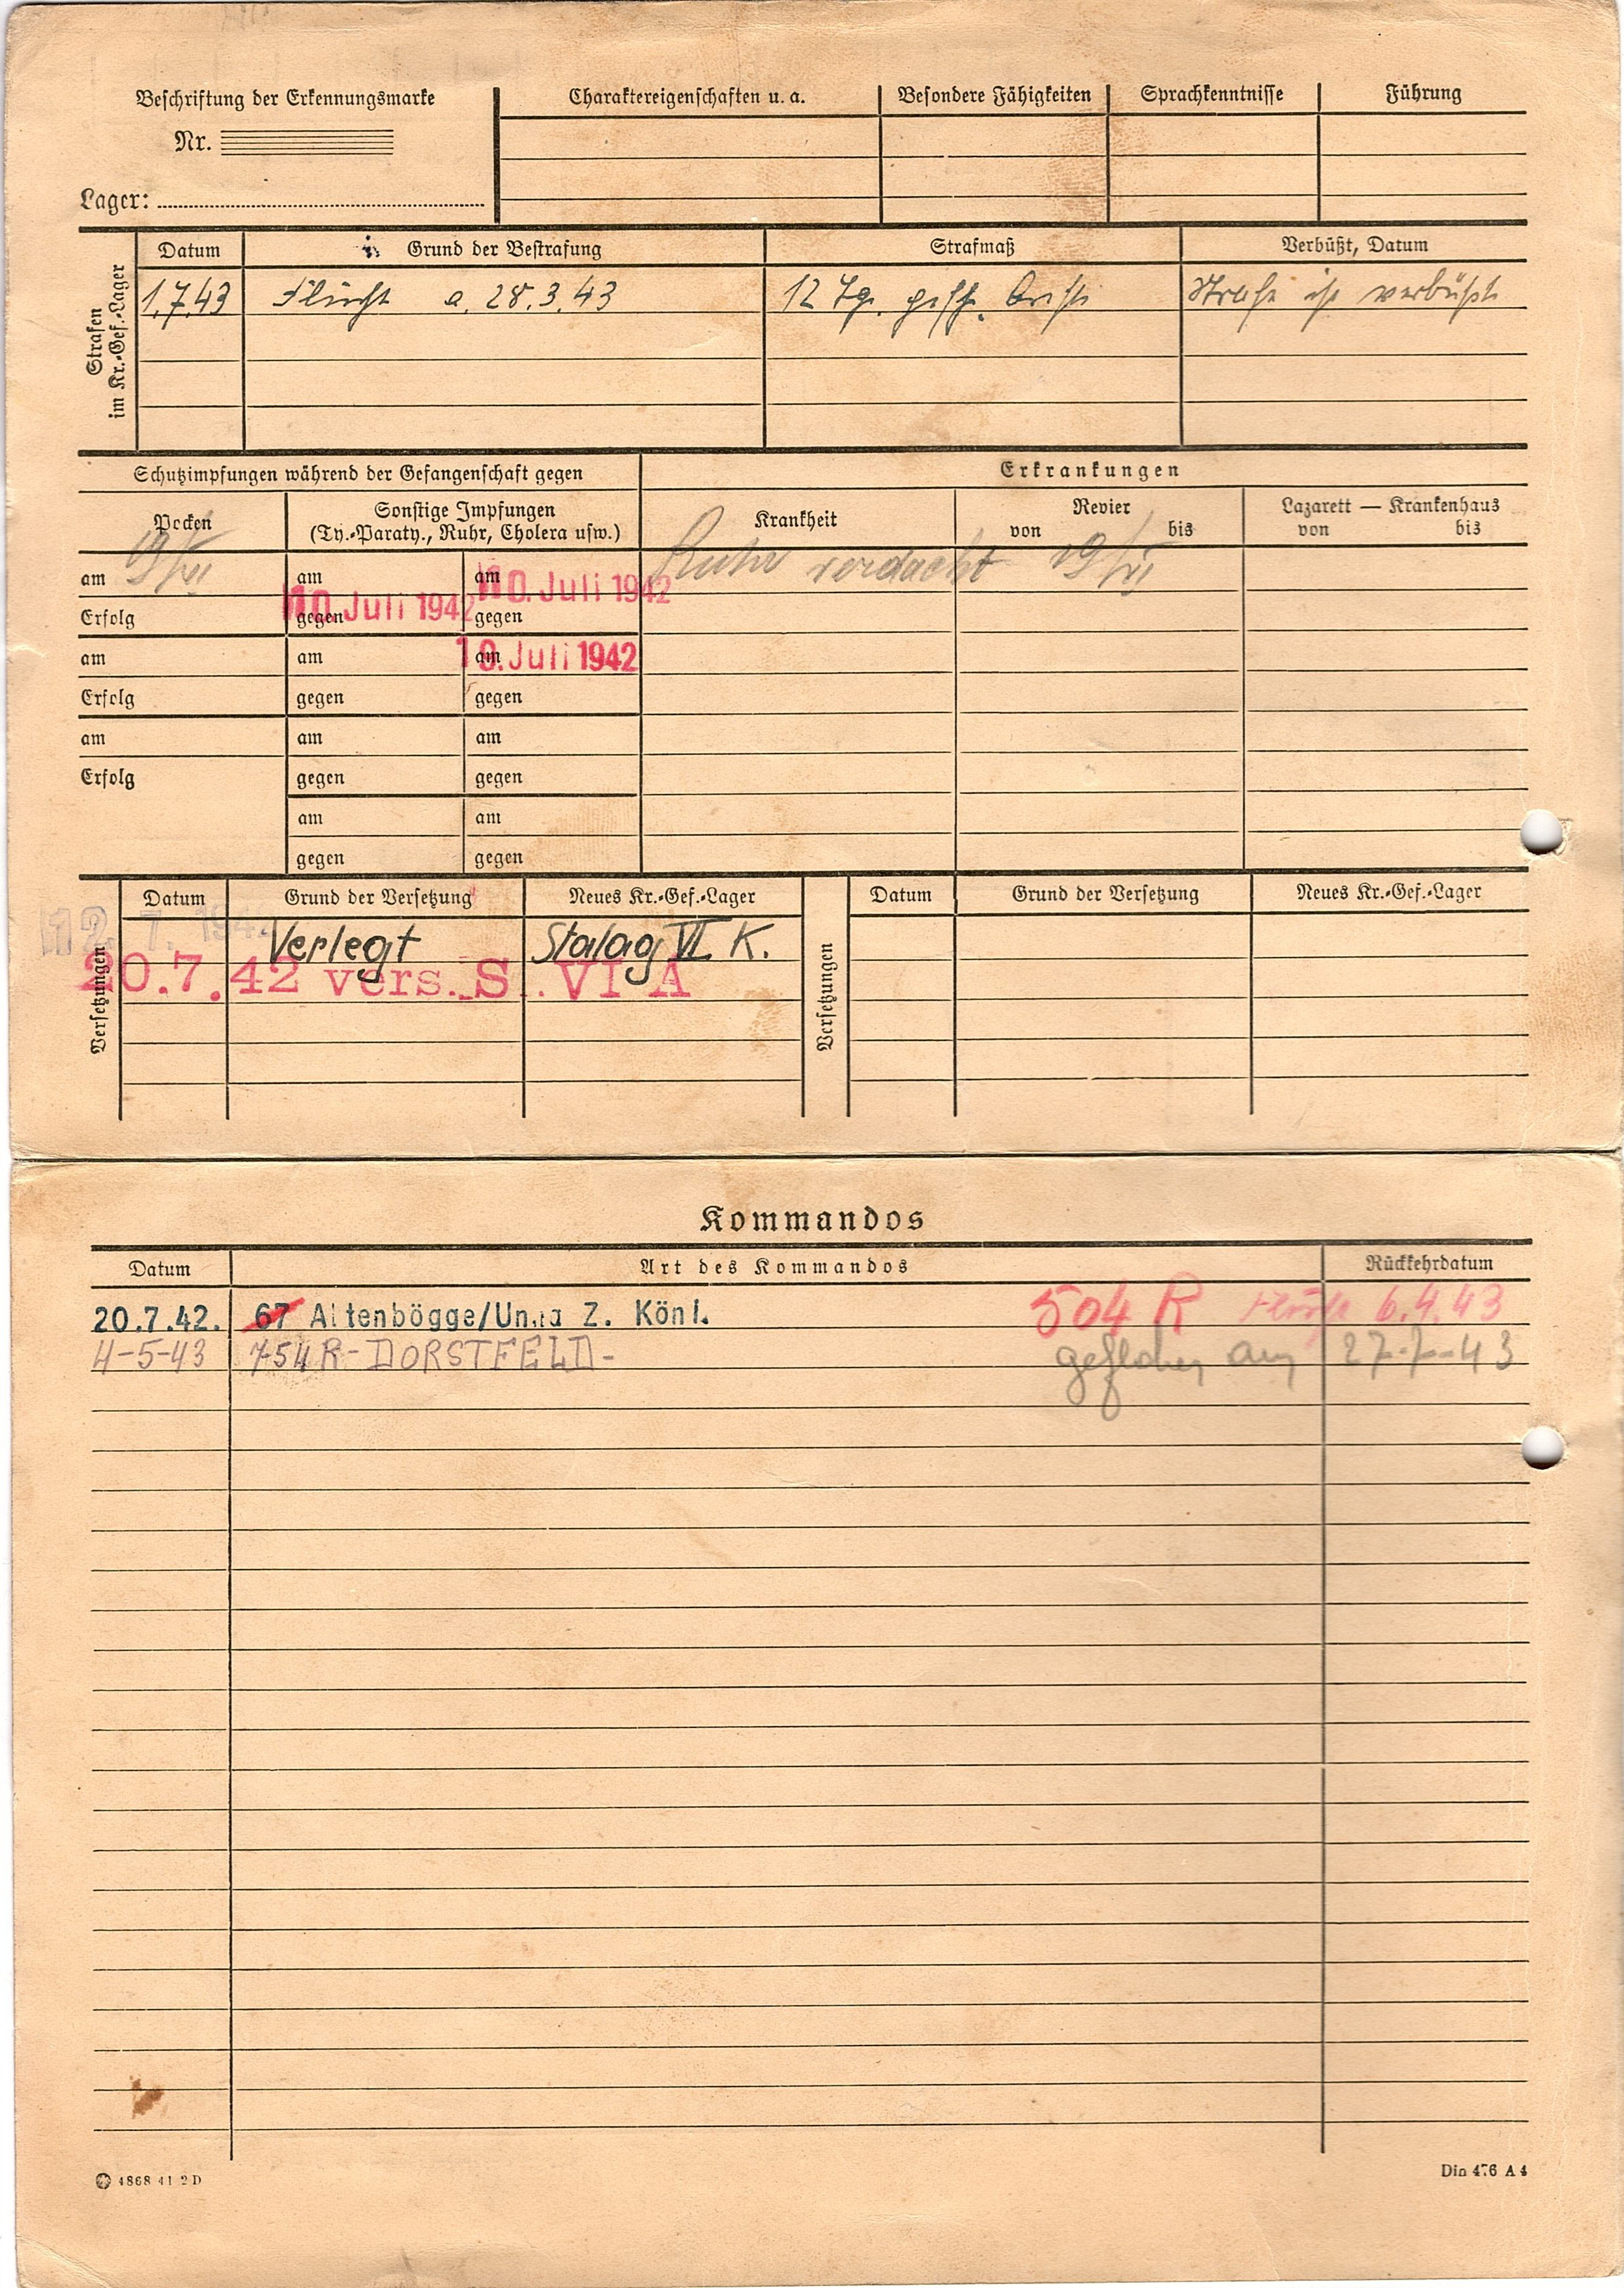 Beschriftung der Erkennungsmarke
Nr.
Lager:
Charaktereigenschaften u. a.
Besondere Fähigkeiten
Sprachkenntnisse
Führung
Strafen
im Kr.-Gef.-Lager
Datum Grund der Bestrafung Strafmaß Verbüßt, Datum
1.7.43 Flucht a. 28.3.43 12 Tg. gesch. Arrest Strafe ist verbüßt
Schutzimpfungen während der Gefangenschaft gegen
Erkrankungen
Pocken
Sonstige Impfungen
(Ty.-Paraty., Ruhr, Cholera usw.)
Krankheit
Revier
von bis
Lazarett — Krankenhaus
von bis
19/VI
Ruhr verdacht 19/VI
am am am
10. Juli 1942 10. Juli 1942
Erfolg gegen gegen
am am am 10. Juli 1942
Erfolg gegen gegen
am am am
Erfolg gegen gegen
am am
gegen gegen
Versetzungen
Datum Grund der Versetzung Neues Kr.-Gef.-Lager
Verlegt Stalag VI K.
20.7.42 vers. S. VI A
Versetzungen
Datum Grund der Versetzung Neues Kr.-Gef.-Lager
Kommandos
Datum Art des Kommandos Rückkehrdatum
20.7.42. 67 Altenbögge/Unna Z. Köni. 504 R Flucht 6.4.43
4-5-43 754 R-DORSTFELD- geflohen am 27-7-43
4868 41 2 D
Din 476 A 4